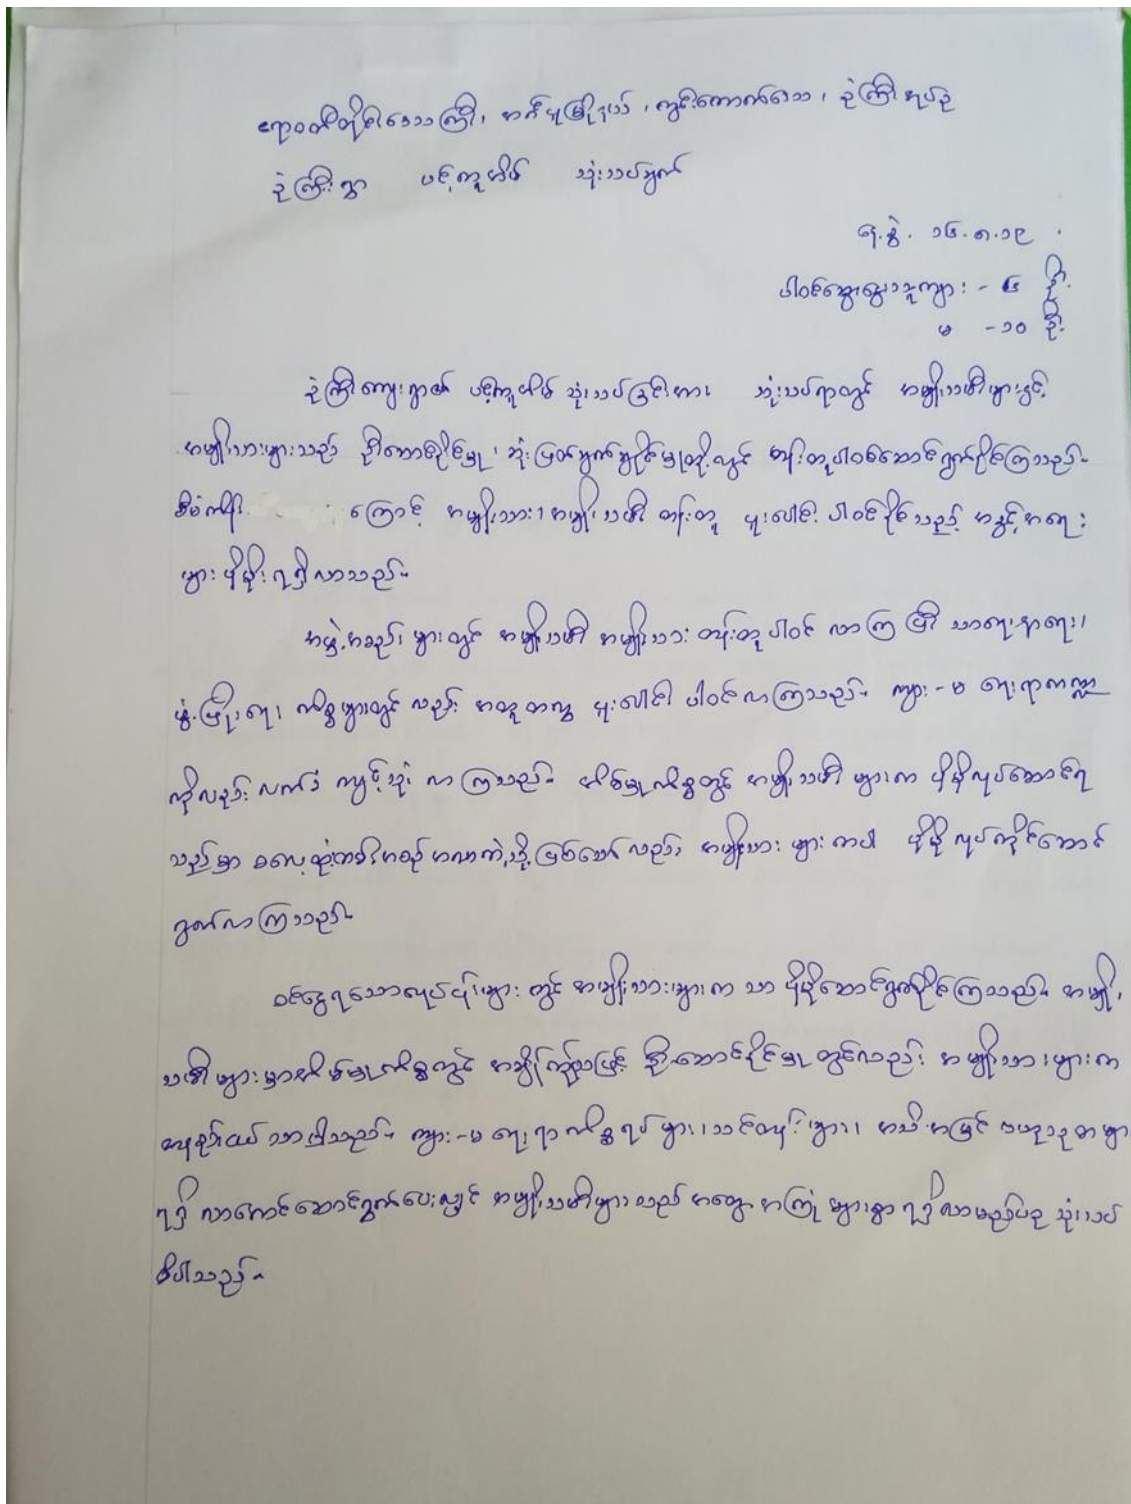 ဧရာဝတီတိုင်းဒေသကြီး၊ အင်္ဂပူမြို့နယ်၊ ကွင်းကောက်ဒေသ၊ ခုံကြီးအုပ်စု
ခုံကြီးရွာ ပင့်ကူအိမ် သုံးသပ်ချက်
နေ့စွဲ. ၁၆.၈.၁၉
ပါဝင်ဆွေးနွေးသူကျား - ၆ ဦး
မ - ၁၀ ဦး
ခုံကြီးကျေးရွာ၏ ပင့်ကူအိမ် သုံးသပ်ခြင်းအား သုံးသပ်ရာတွင် အမျိုးသမီးများနှင့်
အမျိုးသားများသည် ဦးဆောင်နိုင်မှု၊ ဆုံးဖြတ်ချက်ချနိုင်မှုတို့တွင် တန်းတူပါဝင်ဆောင်ရွက်နိုင်ကြသည်။
စီမံကိန်း ကြောင့် အမျိုးသား၊ အမျိုးသမီး တန်းတူ ပူးပေါင်း ပါဝင်နိုင်သည့် အခွင့်အရေး
များ ပိုမိုရရှိလာသည်။
အဖွဲ့အစည်းများတွင် အမျိုးသမီး အမျိုးသား တန်းတူပါဝင် လာကြပြီး သာရေးနာရေး၊
ဖွံ့ဖြိုးရေး ကိစ္စများတွင် လည်း အတူတကွ ပူးပေါင်း ပါဝင်လာကြသည်။ ကျား - မ ရေးရာကဏ္ဍ
ကိုလည်း လက်ခံ ကျင့်သုံး လာကြသည်။ အိမ်မှုကိစ္စတွင် အမျိုးသမီး များက ပိုမိုလုပ်ဆောင်ရ
သည်မှာ ဓလေ့ထုံးတမ်းအစဉ်အလာကဲ့သို့ ဖြစ်သော်လည်း အမျိုးသား များကပါ ပိုမို လုပ်ကိုင်ဆောင်
ရွက်လာကြသည်။
ဝင်ငွေရသောလုပ်ငန်းများ တွင် အမျိုးသားများက သာ ပိုမိုဆောင်ရွက်နိုင်ကြသည်။ အမျိုး
သမီးများမှာအိမ်မှုကိစ္စတွင် ဦးဆောင်နိုင်မှု တွင်လည်း အမျိုးသားများက
သာရှိသည်။ ကျား - မ ရေးရာ ကိစ္စရပ်များ၊ သင်တန်းများ၊ အသိအမြင် ဗဟုသုတများ
ရရှိ လာအောင်ဆောင်ရွက်ပေးလျှင် အမျိုးသမီးများသည် အတွေ့အကြုံ များစွာ ရရှိလာမည်ဟု သုံးသပ်
မိပါသည်။